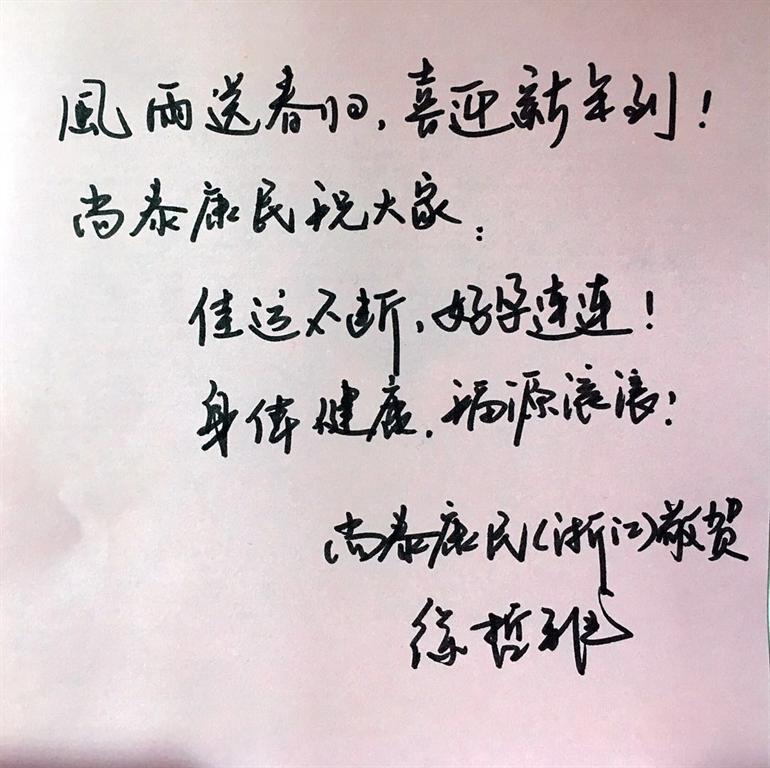 風雨送春归,喜迎新年到!
尚泰康民祝大家:
佳运不断,好孕连连!
身体健康,福源滚滚!
尚泰康民(浙江)敬贺
徐哲